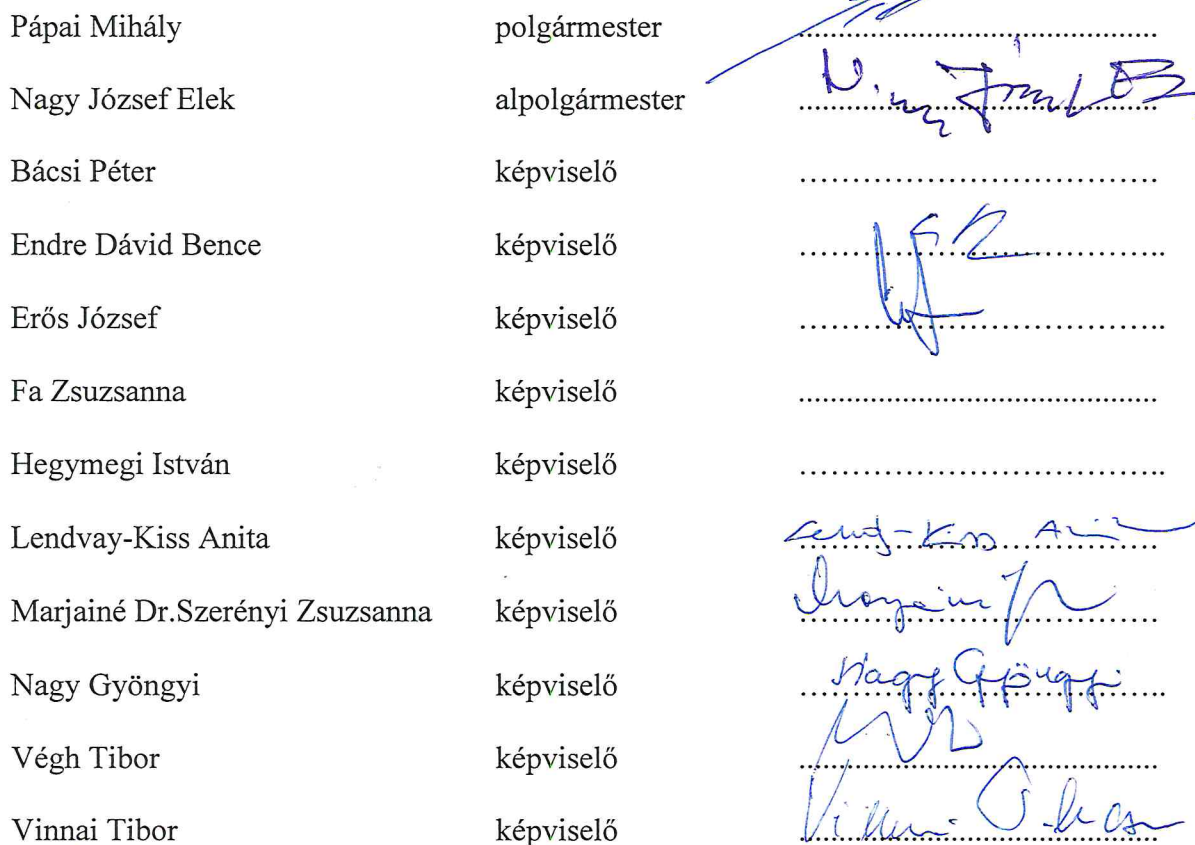 Pápai Mihály polgármester
Nagy József Elek alpolgármester
Bácsi Péter képviselő
Endre Dávid Bence képviselő
Erős József képviselő
Fa Zsuzsanna képviselő
Hegymegi István képviselő
Lendvay-Kiss Anita képviselő
Marjainé Dr.Szerényi Zsuzsanna képviselő
Nagy Gyöngyi képviselő Nagy Gyöngyi
Végh Tibor képviselő
Vinnai Tibor képviselő